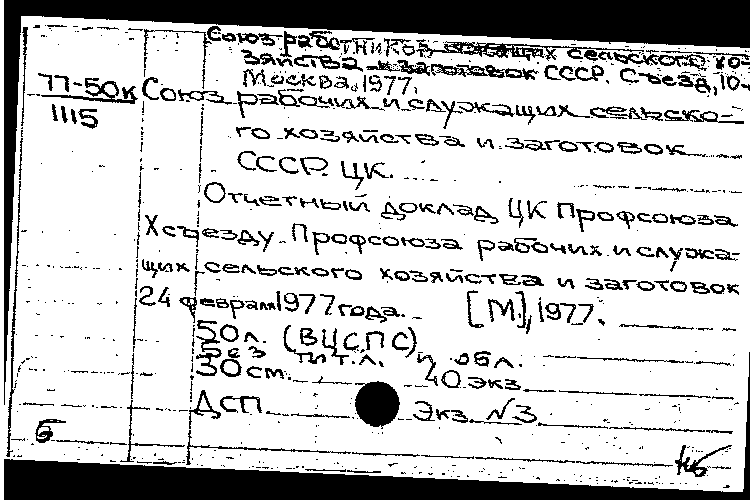 Союз работников сельского хо-
зяйства СССР. Съезд, 10-
Москва. 1977.
77-50к
1115
Союз рабочих и служащих сельско-
го хозяйства и заготовок
СССР. ЦК.
Отчетный доклад ЦК Профсоюза
X съезду Профсоюза рабочих и служа-
щих сельского хозяйства и заготовок
24 февраля 1977 года. [М.], 1977.
50 л. (ВЦСПС)
Без тит. л. и обл.
30 см. 40 экз.
ДСП. Экз. №3.